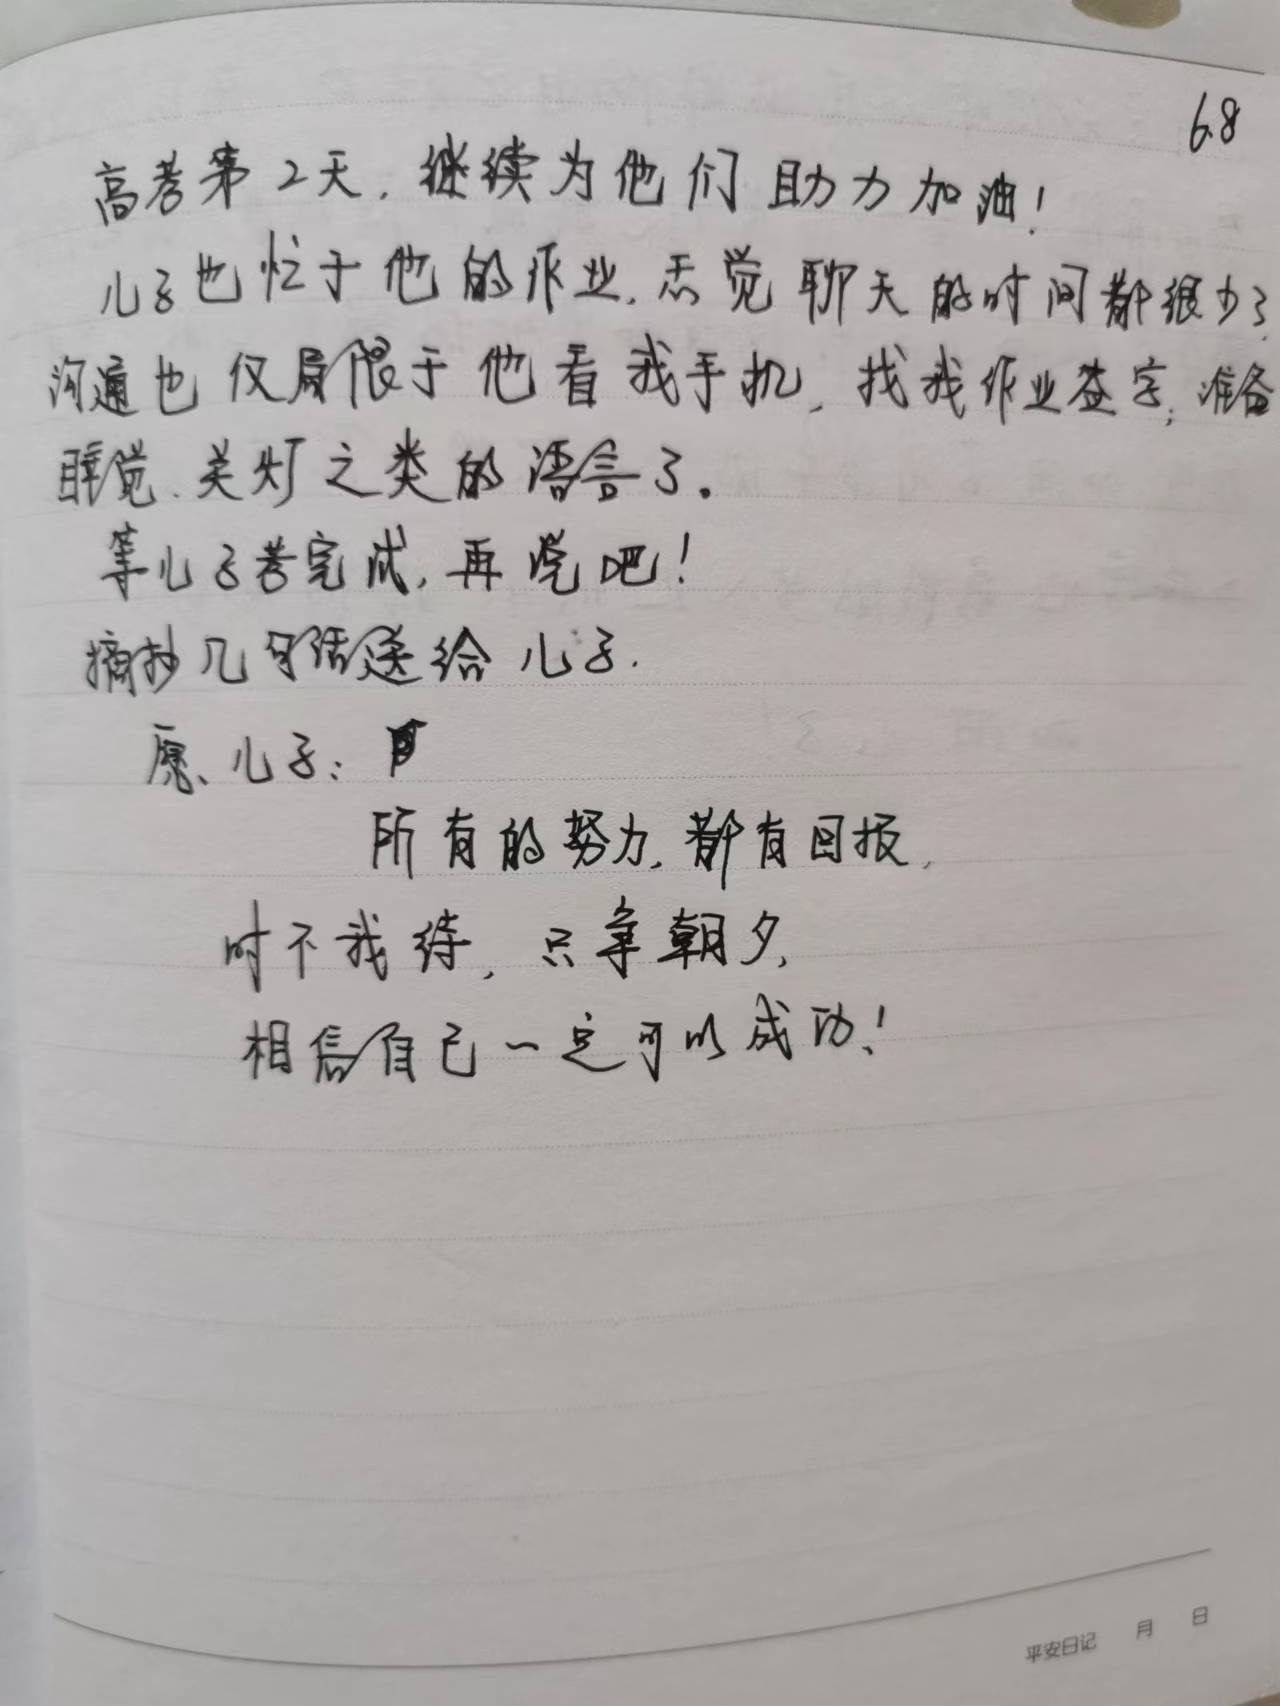 6.8
高考第2天，继续为他们助力加油！
儿子也忙于他的作业，忐觉聊天的时间都很少了，
沟通也仅局限于他看我手机，找我作业签字，准备
睡觉、关灯之类的语言了。
等儿子考完试，再说吧！
摘抄几句话送给儿子．
愿儿子：
所有的努力，都有回报，
时不我待，只争朝夕，
相信自己一定可以成功！
平安日记 月 日